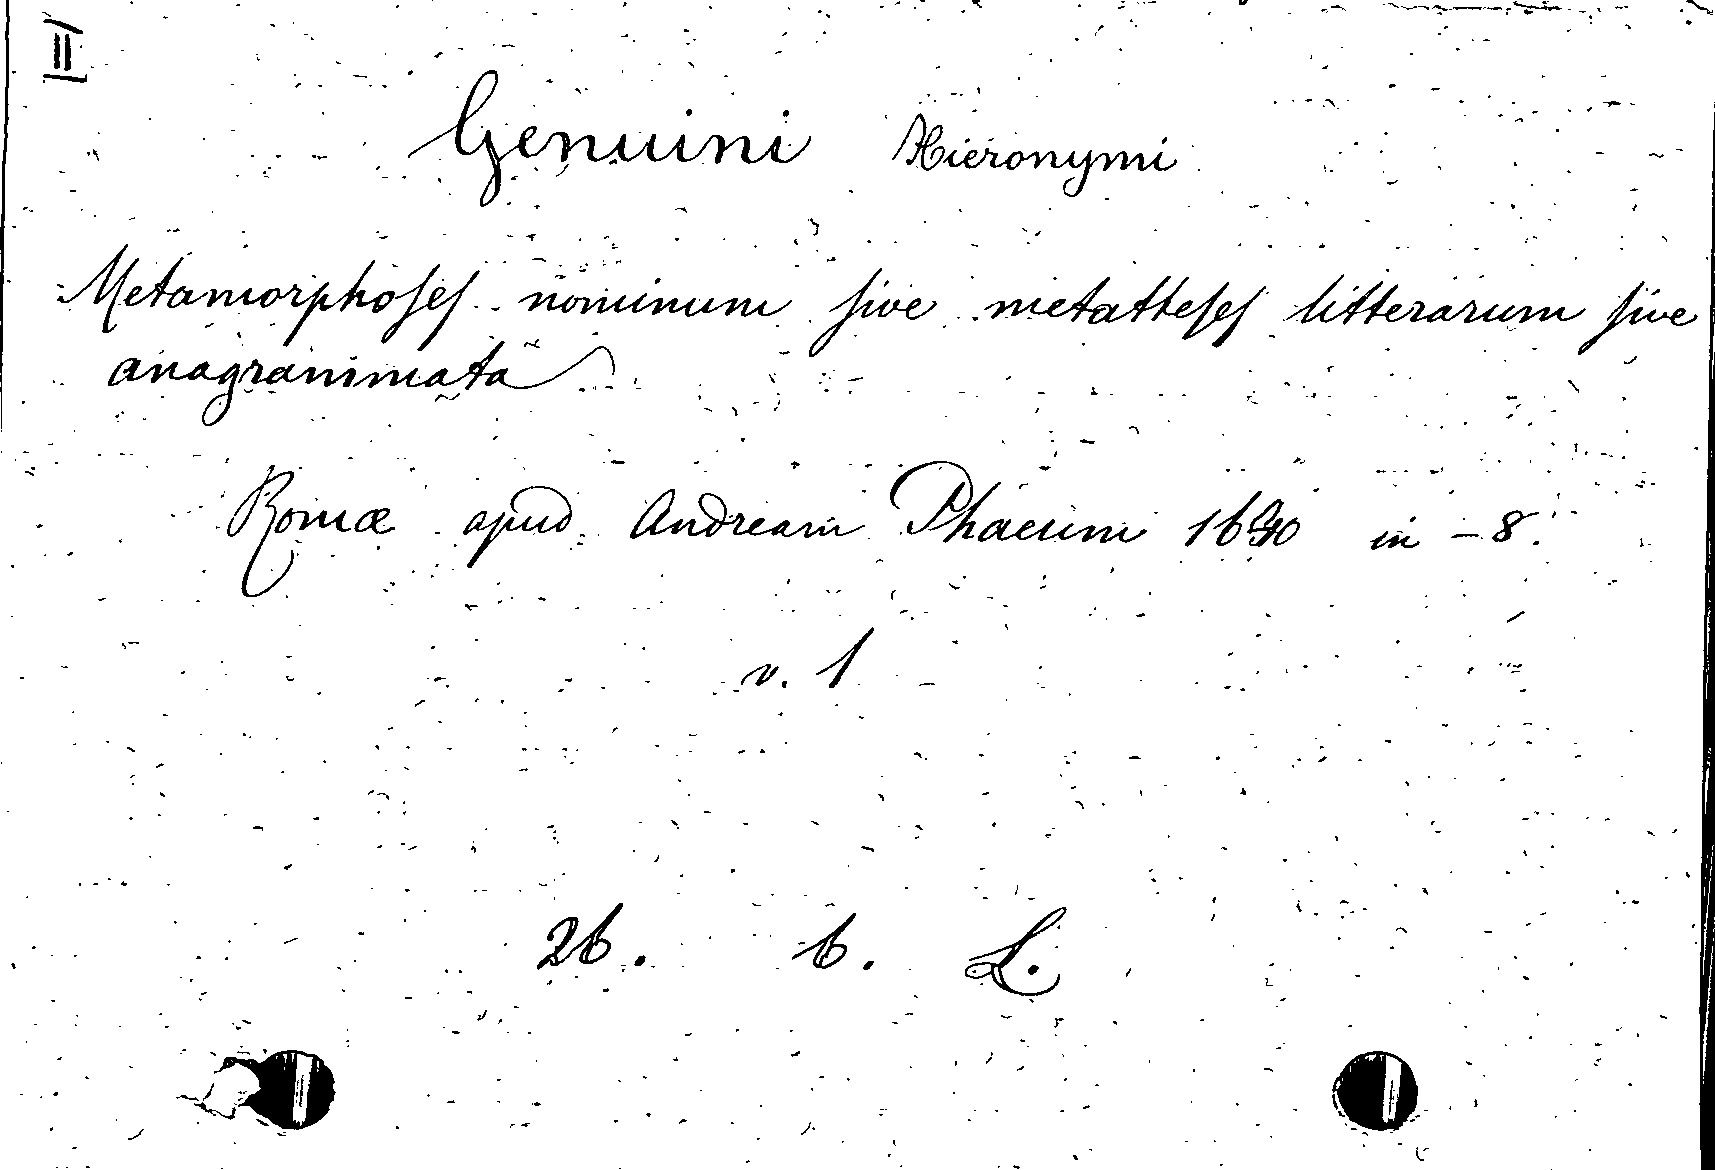 III
Genuini Hieronymi
Metamorphoses nominum sive metatteses litterarum sive
anagrammata
Romæ apud Andream Phaeum in -8.
v. 1
26. 6. L.